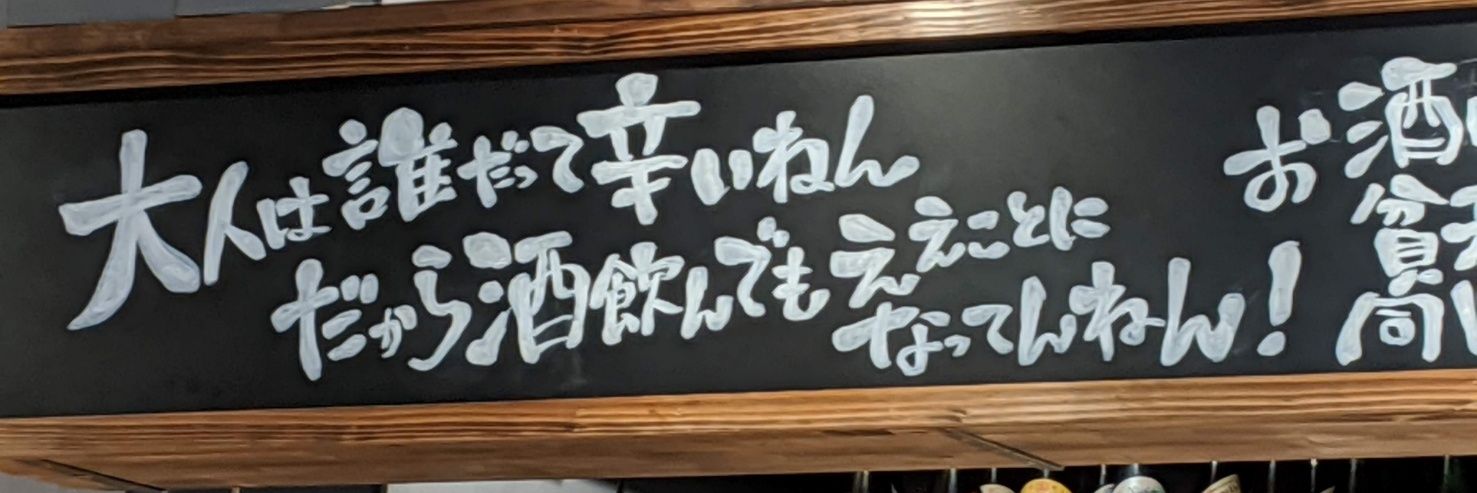 大人は誰だって辛いねん
だから酒飲んでもええことに
なってんねん!
お酒
貧
向